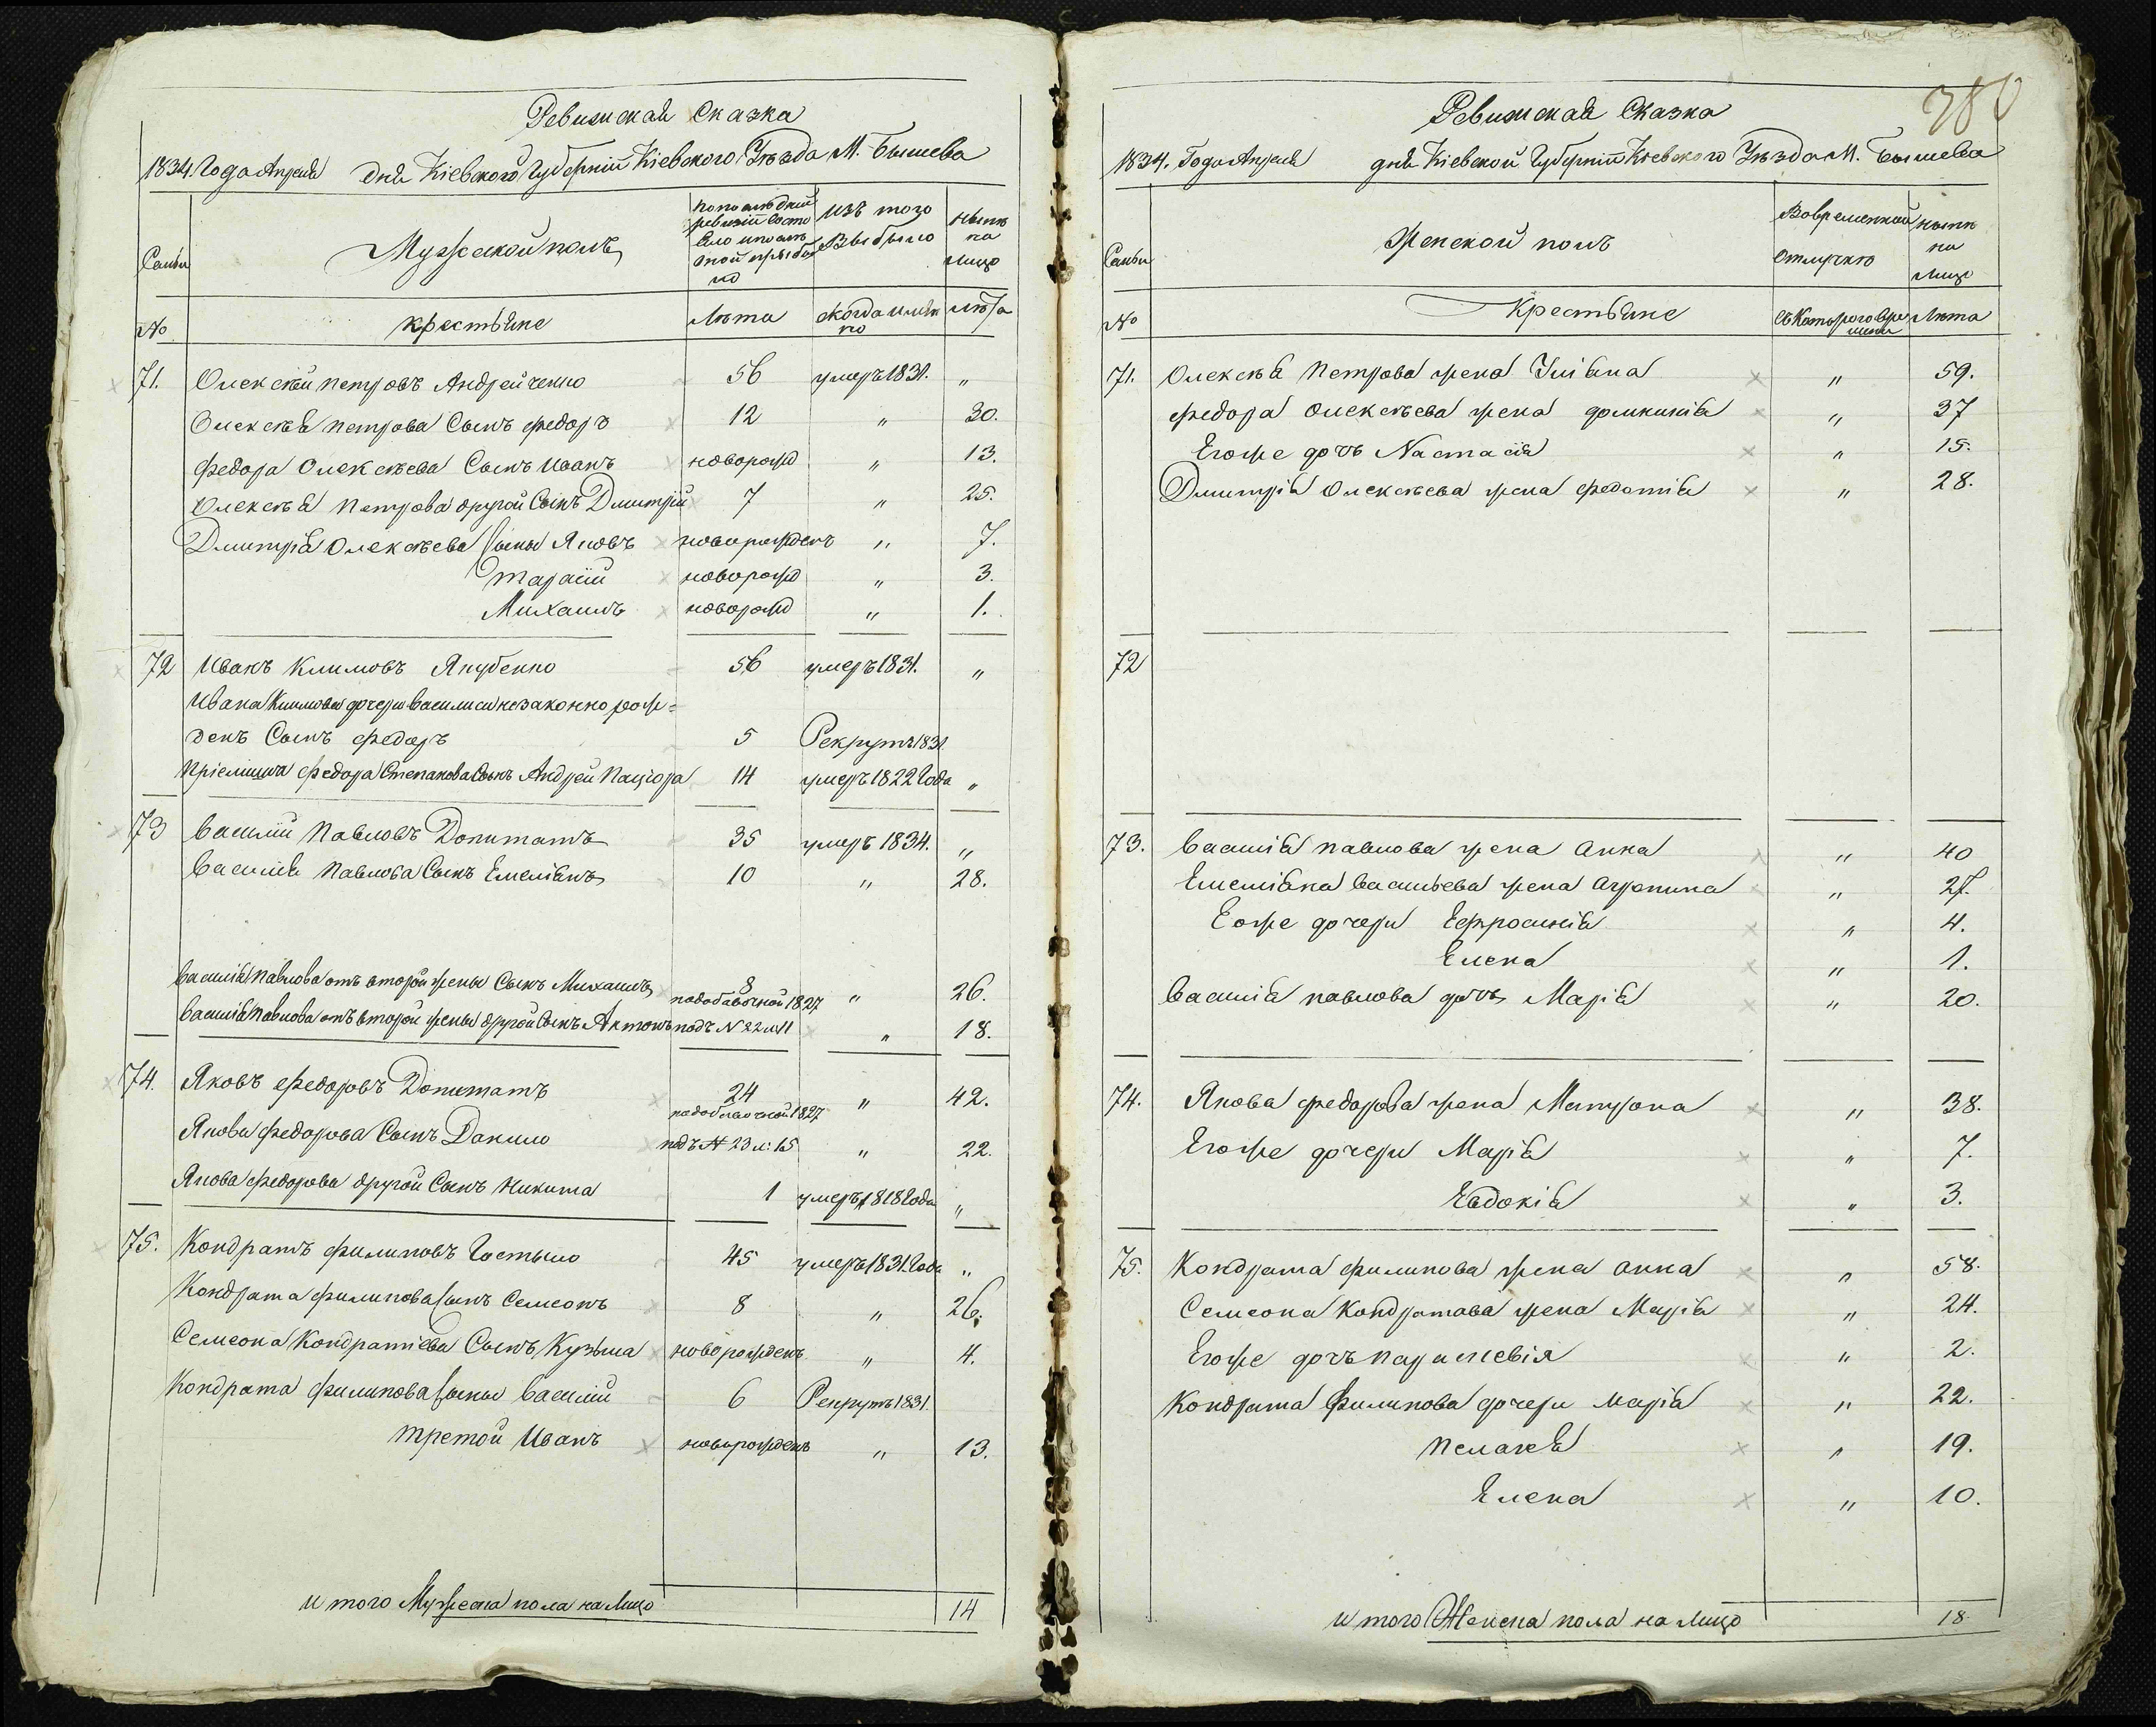 Ревизская Сказка
1834. Года Апреля дня Кіевской Губерніи Кіевского Уѣзда М. Бышева
Семьи
Мужеской полъ
По последней ревизіи состояло и после оной прибыло
Изъ того Выбыло
Нынѣ на лицо
№
крестьяне
Лѣта
Когда имянно
Лѣта
71. Олексѣй Петровъ Андрейченко 56 умеръ 1831. "
Олексѣя Петрова Сынъ Федоръ 12 " 30.
Федора Олексѣева Сынъ Иванъ новорожд " 13.
Олексѣя Петрова другой Сынъ Дмитрій 7 " 25.
Дмитрія Олексѣева Сыны Яковъ новорожденъ " 7.
Тарасій новорожд " 3.
Михаилъ новорожд " 1.
72 Иванъ Климовъ Якубенко 56 умеръ 1831. "
Ивана Климова дочери Василисы незаконнорож=
денъ Сынъ Федоръ 5 Рекрутъ 1831
Пріемыша Федора Степанова Сынъ Андрей Пацюра 14 умеръ 1822 Года "
73 Василій Павловъ Допитатъ 35 умеръ 1834. "
Василія Павлова Сынъ Емеліянъ 10 " 28.
Василія Павлова отъ второй жены Сынъ Михаилъ 8 " 26.
по добавочной 1827
Василія Павлова отъ второй жены другой Сынъ Антонъ подъ N 22 м 11 " 18.
74. Яковъ Федоровъ Допитатъ 24 " 42.
по добавочной 1827
Якова Федорова Сынъ Данило подъ N 23 м: 15 " 22.
Якова Федорова другой Сынъ Никита 1 умеръ 1818 Года "
75. Кондратъ Филиповъ Костыло 45 умеръ 1831. Года "
Кондрата Филипова Сынъ Семеонъ 8 " 26.
Семеона Кондратіева Сынъ Кузьма новорожденъ " 4.
Кондрата Филипова Сыны Василій 6 Рекрутъ 1831.
третой Иванъ новорожденъ " 13.
Итого Мужеска пола на Лицо 14
380
Ревизская Сказка
1834. Года Апреля дня Кіевской Губерніи Кіевского Уѣзда М. Бышева
Семьи
Женской полъ
Во временной отлучкѣ
Нынѣ на лицо
№
Крестьяне
съ Которого времени
Лѣта
71. Олексѣя Петрова жена Уліяна " 59.
Федора Олексѣева жена Домникія " 37
Егоже дочъ Настасія " 15.
Дмитрія Олексѣева жена Федотія " 28.
72
73. Василія Павлова жена Анна " 40
Емеліяна Васильева жена Агрипина " 27.
Егоже дочери Ефросинія " 4.
Елена " 1.
Василія Павлова дочъ Марія " 20.
74. Якова Федорова жена Матрона " 38.
Егоже дочери Марія " 7.
Евдокія " 3.
75. Кондрата Филипова жена Анна " 58.
Семеона Кондратова жена Марія " 24.
Егоже дочъ Параскевія " 2.
Кондрата Филипова дочери Марія " 22.
Пелагея " 19.
Елена " 10.
Итого Женска пола на Лицо 18